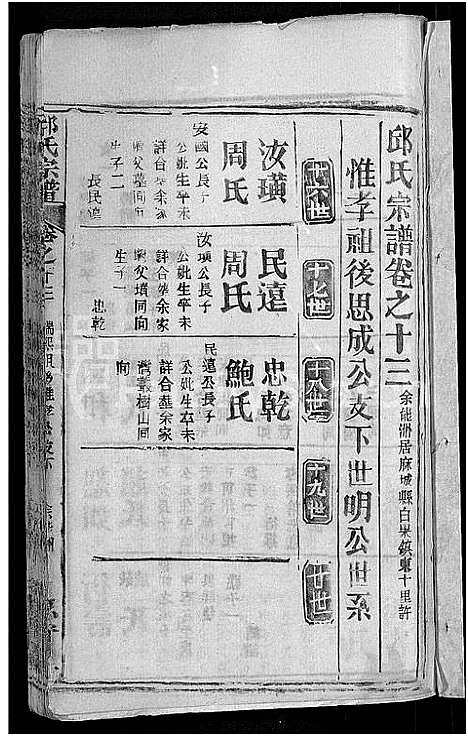 邱氏宗譜卷之十三 余能淵居麻城縣白杲鎮東十里許
惟孝祖後思成公支下世明公世系
十六世
十七世
十八世
十九世
廿世
汝璜
周氏
安國公長子
公妣生卒未
詳合葬余家
生子二
長民遠
民遠
周氏
汝璜公長子
公妣生卒未
詳合葬余家
墳同向
生子一
忠乾
忠乾
鮑氏
民遠公長子
公妣生卒未
詳合葬余家
樹山同
向
邱氏宗譜
卷之十三